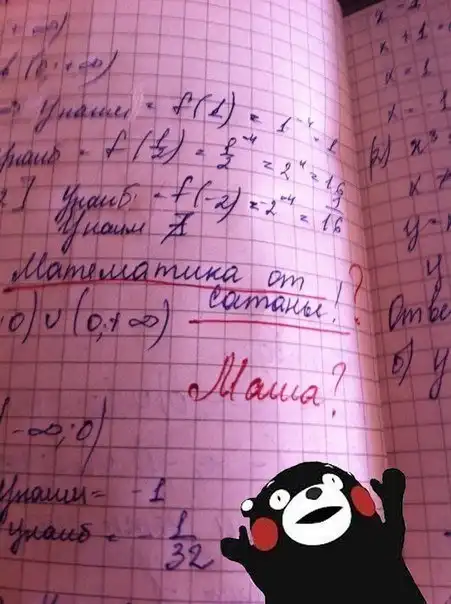 +∞)
(0;+∞)
Унаим = f(1) = 1⁻⁴ = 1
Унаиб = f(1/2) = 1/2⁻⁴ = 2⁴ = 16
Унаиб = f(-2) = 2⁻⁴ = 1/16
Унаим
Математика от
сатаны!?
;0) ∪ (0;+∞)
Маша?
(-∞;0)
Унаим = -1
Унаиб = - 1/32
x = 1
x + 1 =
x = 1
x = -1
2) x³
y
Отве
б) y